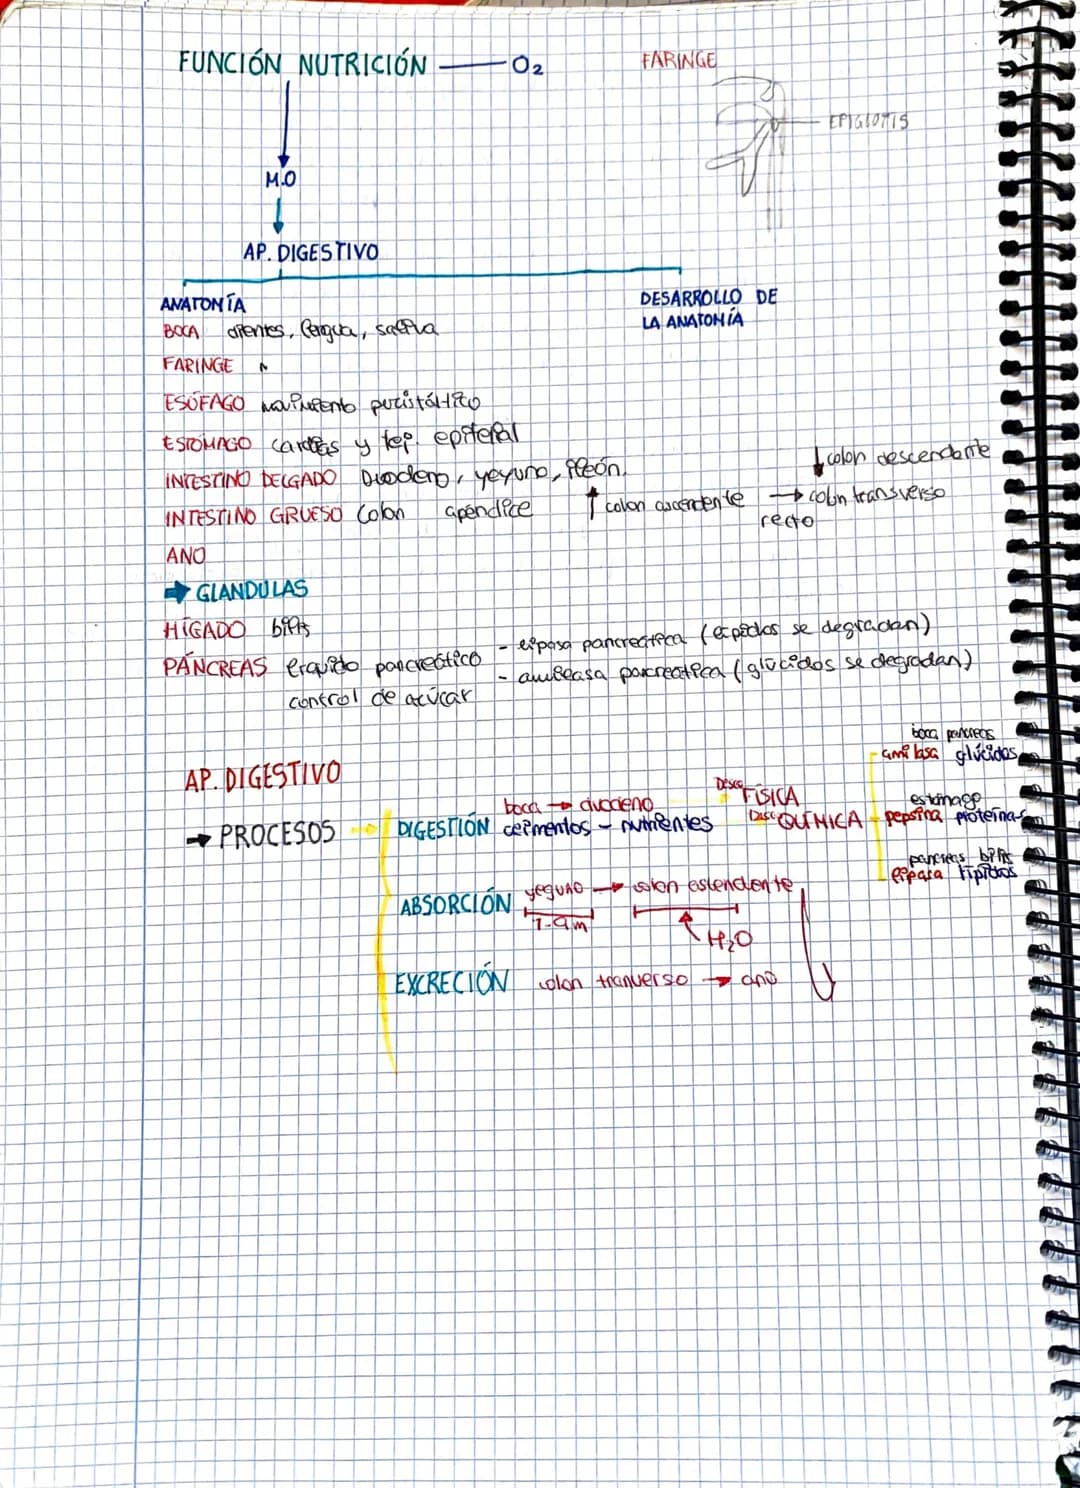 FUNCIÓN NUTRICIÓN — O2
FARINGE
EPIGLOTIS
M.O
AP. DIGESTIVO
ANATOMÍA
DESARROLLO DE
LA ANATOMÍA
BOCA dientes, lengua, saliva
FARINGE
ESÓFAGO movimiento peristáltico
ESTÓMAGO cardias y tej. epitelial
INTESTINO DELGADO Duodeno, yeyuno, íleón.
↓ colon descendente
INTESTINO GRUESO Colon apéndice ↑ colon ascendente → colon transverso
recto
ANO
→ GLANDULAS
HÍGADO bilis
PÁNCREAS líquido pancreático - lipasa pancreatica (lípidos se degradan)
- amileasa pancreatica (glúcidos se degradan)
control de azúcar
AP. DIGESTIVO
→ PROCESOS
DIGESTIÓN boca → duodeno
alimentos - nutrientes
Desc FÍSICA
Desc QUÍMICA
boca páncreas
amilasa glúcidos
estómago
pepsina proteínas
pancreas bilis
lipasa lípidos
ABSORCIÓN yeguno → colon estendente
7-9m
H2O
EXCRECIÓN colon tranverso → ano